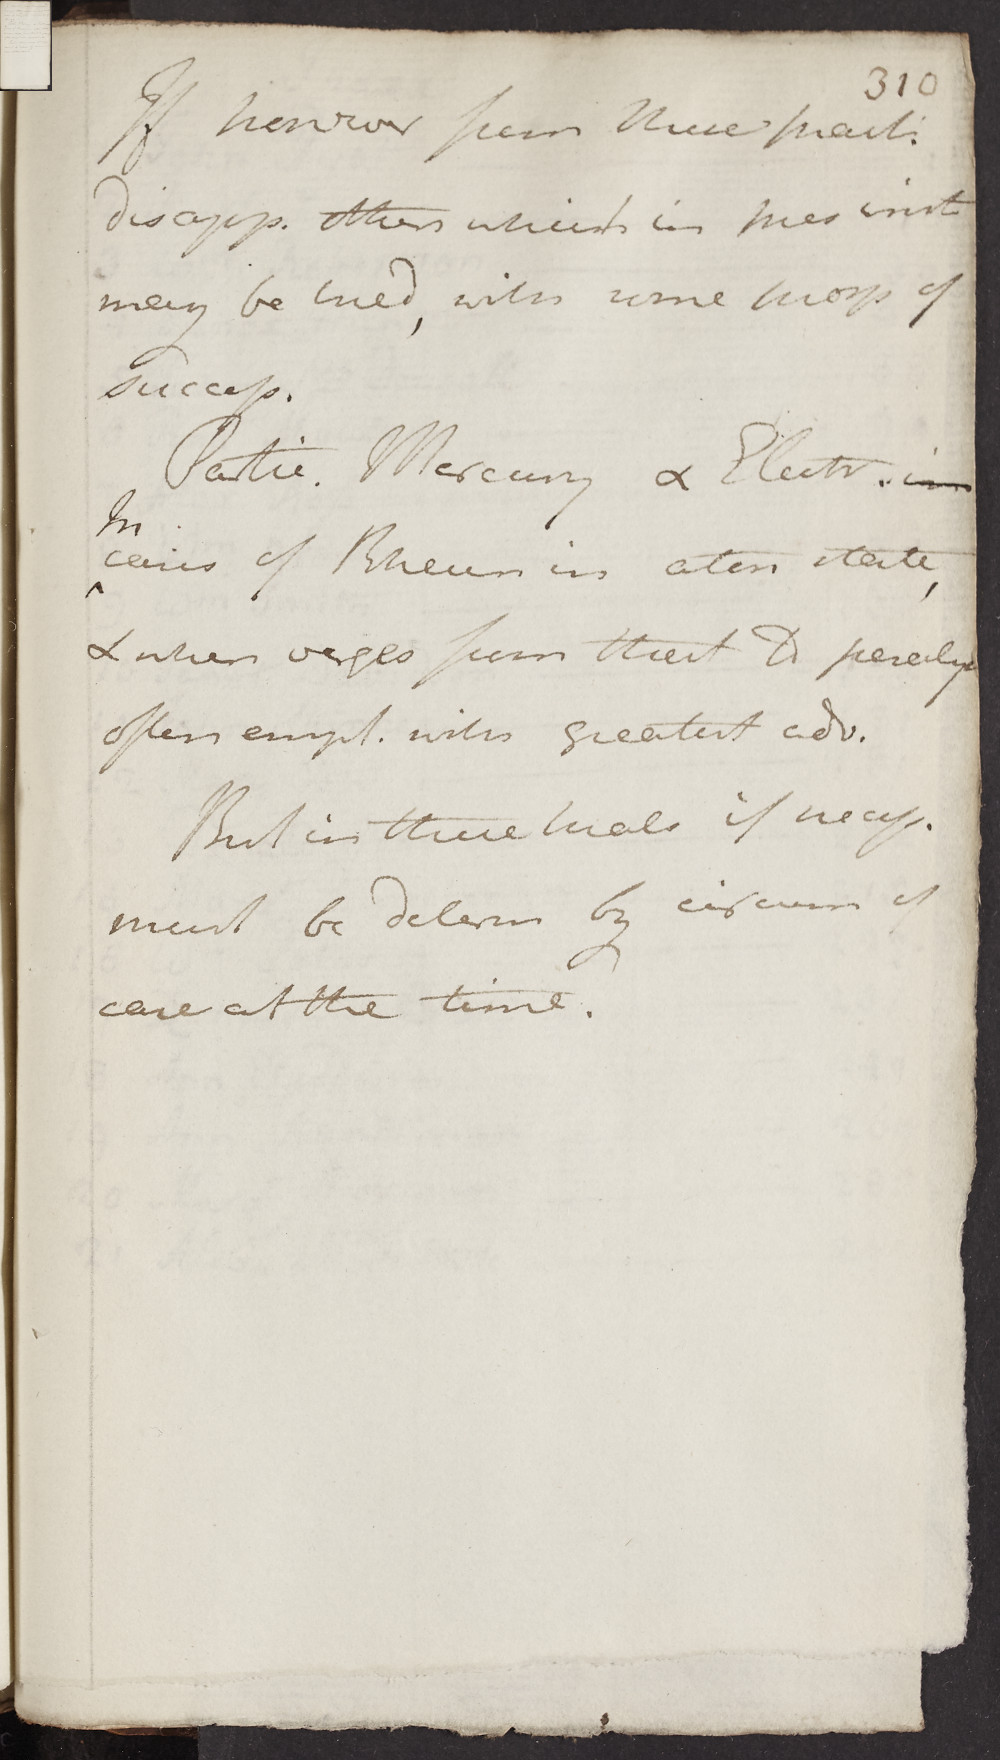 310
If however from these pract:
disapp. others which in pres inst
may be tried, with some prosp of
success.
Partic. Mercury & Electr. in
In
cases of Rheum in aton state,
& when verges from that to paralys
often empl. with greatest adv.
But in these trials if necess.
must be determ by circum of
case at the time.